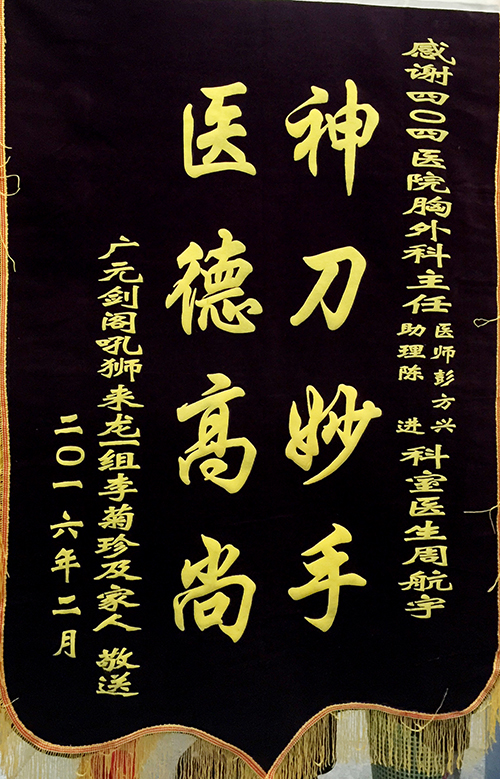 感谢四〇四医院胸外科主任医师彭方兴
助理陈进科室医生周航宇
神刀妙手
医德高尚
广元剑阁吼狮来龙一组李菊珍及家人 敬送
二〇一六年二月